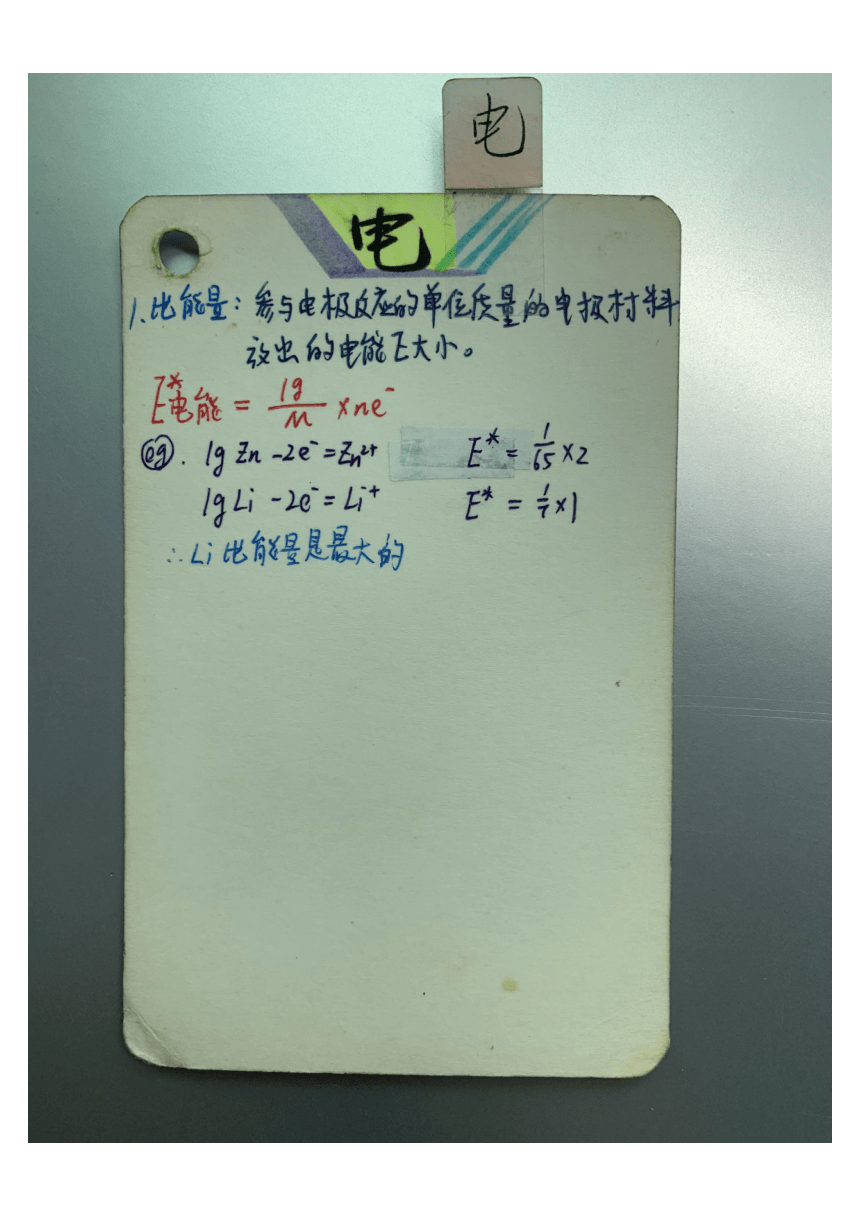 电
电
1. 比能量：参与电极反应的单位质量的电极材料
放出的电能E大小。
E*电能 = 1g/M ×ne⁻
eg. 1g Zn -2e⁻ = Zn²⁺ E* = 1/65 ×2
1g Li -2e⁻ = Li⁺ E* = 1/7 ×1
∴ Li 比能量是最大的